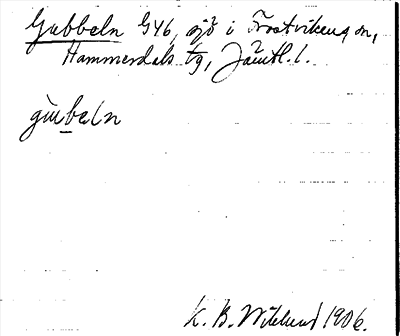 Gubbeln G46, sjö i Frostvikens sn,
Hammerdals tg, Jämtl. l.
gùbeln
K. B. Wiklund 1906.